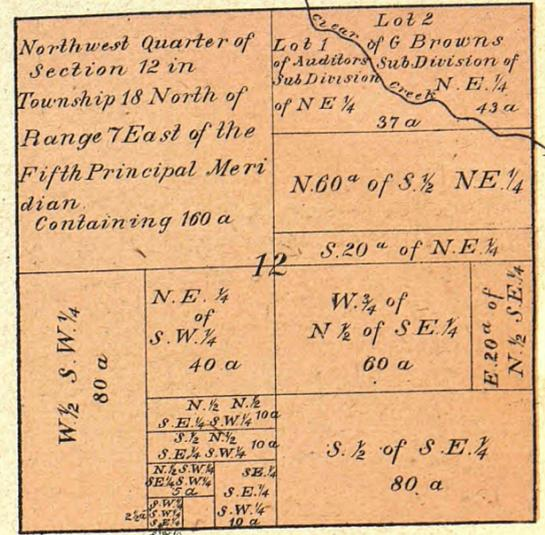 Northwest Quarter of
Section 12 in
Township 18 North of
Range 7 East of the
Fifth Principal Meri
dian
Containing 160 a
Clear
Creek
Lot 1
of Auditors
Sub Division
of N E ¼
37 a
Lot 2
of G Browns
Sub. Division of
N. E. ¼
43 a
N. 60 a of S. ½ N.E. ¼
S. 20 a of N.E. ¼
12
W. ½ S.W. ¼
80 a
N. E. ¼
of
S. W. ¼
40 a
W. ¾ of
N ½ of S E. ¼
60 a
E. 20 a of
N. ½ S.E. ¼
N. ½ N. ½
S. E. ¼ S. W. ¼ 10 a
S. ½ N. ½
S. E. ¼ S. W. ¼ 10 a
N. ½ S. W. ¼
S E. ¼ S. W. ¼
5 a
S. W. ¼
S. W. ¼
S. E. ¼
2 ½ a
S E. ¼
S. E. ¼
S. W. ¼
10 a
S. ½ of S. E. ¼
80 a